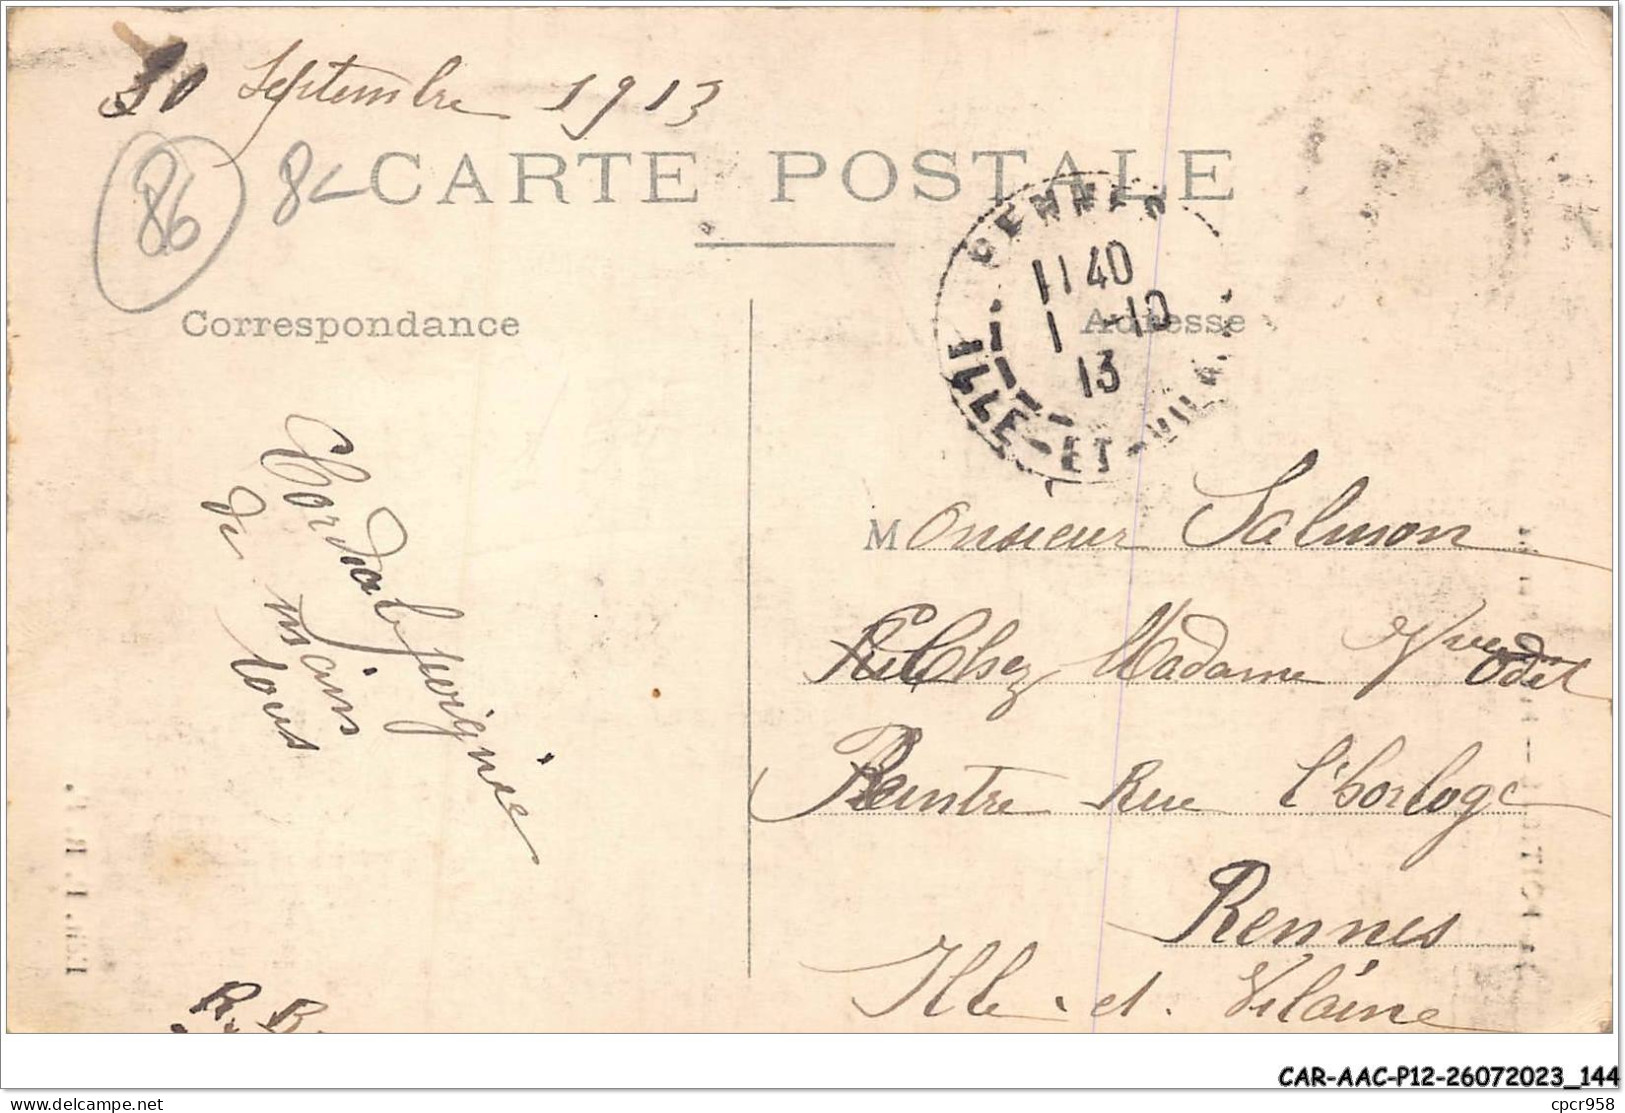 30 Septembre 1913
86
CARTE POSTALE
RENNES
11 40
1 -10
13
ILLE-ET-VIL
Correspondance
Adresse
Cordial
de main
tous
R. B.
Monsieur Salmon
Chez Madame Odil
Peintre Rue l'horloge
Rennes
Ille-et-Vilaine
CAR-AAC-P12-26072023_144
delcampe.net
cpcr958